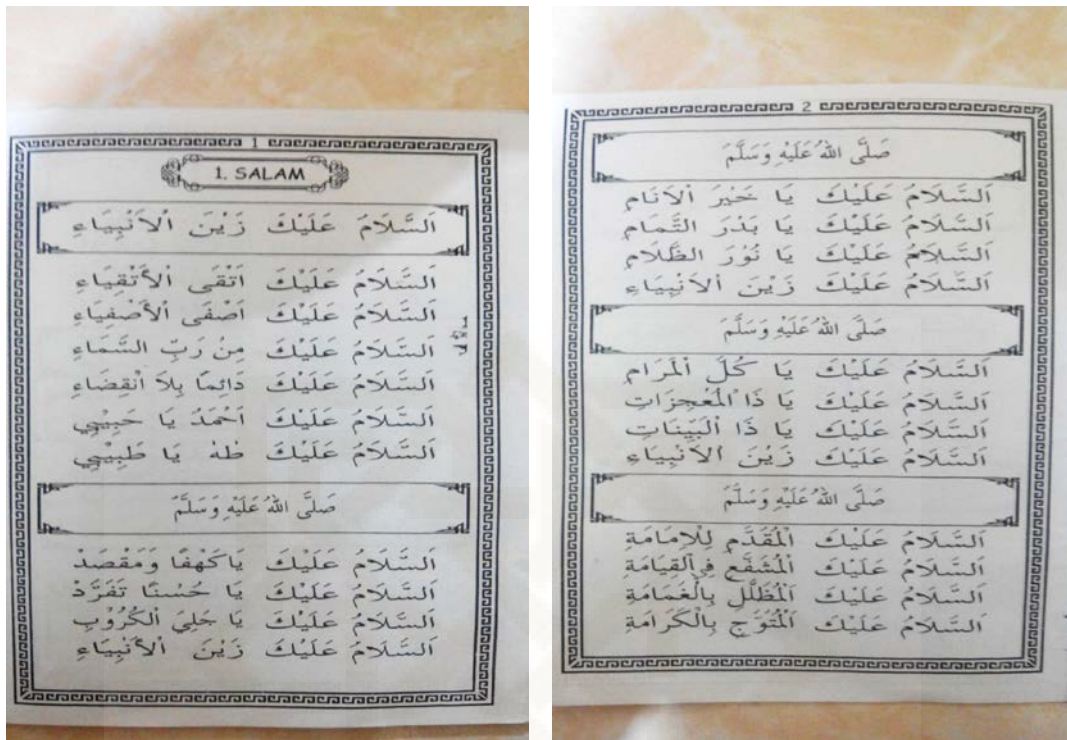 1
1. SALAM
اَلسَّلَامُ عَلَيْكَ زَيْنَ اْلأَنْبِيَاءِ
اَلسَّلَامُ عَلَيْكَ اَتْقَى اْلأَتْقِيَاءِ
اَلسَّلَامُ عَلَيْكَ اَصْفَى اْلأَصْفِيَاءِ
اَلسَّلَامُ عَلَيْكَ مِنْ رَبِّ السَّمَاءِ
اَلسَّلَامُ عَلَيْكَ دَائِمًا بِلاَ انْقِضَاءِ
اَلسَّلَامُ عَلَيْكَ اَحْمَدُ يَا حَبِيْبِي
اَلسَّلَامُ عَلَيْكَ طٰهٰ يَا طَبِيْبِي
صَلَّى اللهُ عَلَيْهِ وَسَلَّمَ
اَلسَّلَامُ عَلَيْكَ يَا كَهْفًا وَمَقْصَدْ
اَلسَّلَامُ عَلَيْكَ يَا حُسْنًا تَفَرَّدْ
اَلسَّلَامُ عَلَيْكَ يَا جَلِيَ الْكُرُوْبِ
اَلسَّلَامُ عَلَيْكَ زَيْنَ اْلأَنْبِيَاءِ
2
صَلَّى اللهُ عَلَيْهِ وَسَلَّمَ
اَلسَّلَامُ عَلَيْكَ يَا خَيْرَ اْلاَنَامِ
اَلسَّلَامُ عَلَيْكَ يَا بَدْرَ التَّمَامِ
اَلسَّلَامُ عَلَيْكَ يَا نُوْرَ الظَّلَامِ
اَلسَّلَامُ عَلَيْكَ زَيْنَ اْلاَنْبِيَاءِ
صَلَّى اللهُ عَلَيْهِ وَسَلَّمَ
اَلسَّلَامُ عَلَيْكَ يَا كُلَّ الْمَرَامِ
اَلسَّلَامُ عَلَيْكَ يَا ذَا الْمُعْجِزَاتِ
اَلسَّلَامُ عَلَيْكَ يَا ذَا الْبَيِّنَاتِ
اَلسَّلَامُ عَلَيْكَ زَيْنَ اْلاَنْبِيَاءِ
صَلَّى اللهُ عَلَيْهِ وَسَلَّمَ
اَلسَّلَامُ عَلَيْكَ الْمُقَدَّمِ لِلْإِمَامَةِ
اَلسَّلَامُ عَلَيْكَ الْمُشَفَّعِ فِى الْقِيَامَةِ
اَلسَّلَامُ عَلَيْكَ الْمُظَلَّلِ بِالْغَمَامَةِ
اَلسَّلَامُ عَلَيْكَ الْمُتَوَّجِ بِالْكَرَامَةِ